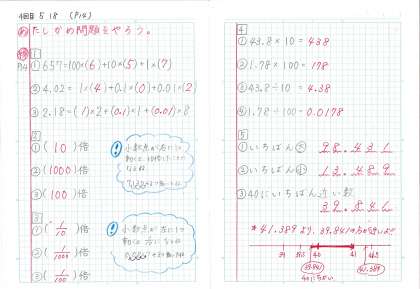 4回目 5 18 (P14)
め たしかめ問題をやろう。
P14 ① 657=100×(6)+10×(5)+1×(7)
② 4.02= 1×(4)+0.1×(0)+0.01×(2)
③ 2.18=(1)×2+(0.1)×1+(0.01)×8
2
①(10)倍
②(1000)倍
③(100)倍
小数点が右に1つ
3
①(1/10)倍
②(1/1000)倍
③(1/100)倍
小数点が左に1つ
動くと右になる
4
① 43.8×10=438
② 1.78×100=178
③ 43.8÷10=4.38
④ 1.78÷100=0.0178
5
① いちばん大 98.431
② いちばん小 13.489
③ 40にいちばん近い数
39.841
*41.389より、39.841の方が近いよ
39 40 41
39.841 41.389
40にちかい